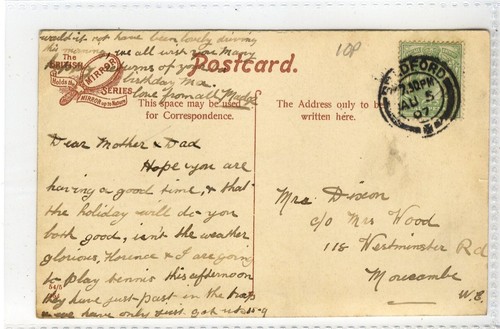 would it not have been lovely driving
this morning, we all wish you many
happy returns of your
birthday Ma.
love from all Madge
10P
The
BRITISH
Holds the
MIRROR
MIRROR up to Nature
SERIES
Postcard.
This space may be used
for Correspondence.
The Address only to be
written here.
BEDFORD
7.30PM
AU 5
07
Dear Mother & Dad
Hope you are
having a good time, & that
the holiday will do you
both good, isn't the weather
glorious, Florence & I are going
to play tennis this afternoon
they have just past in the trap
& we have only just got up
Mrs Dixon
c/o Mrs Wood
118 Westminster Rd
Morecambe
W.E.